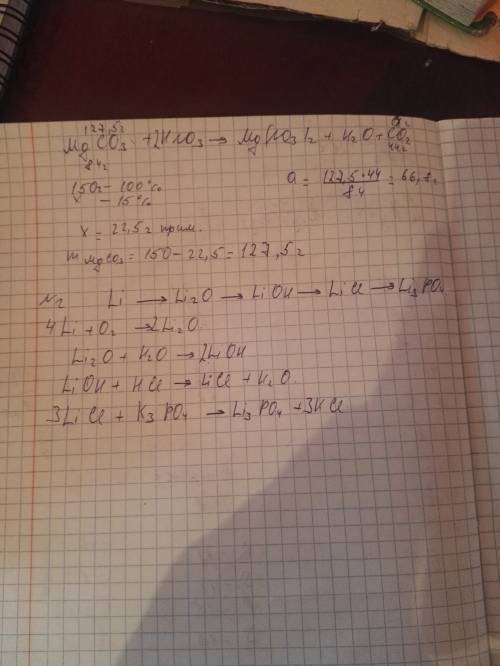 127,5г a г
MgCO3 + 2HNO3 → Mg(NO3)2 + H2O + CO2
84г 44г
150г – 100% a = 127,5·44 / 84 = 66,8г
x – 15%
x = 22,5г прим.
m MgCO3 = 150 – 22,5 = 127,5г
N2 Li → Li2O → LiOH → LiCl → Li3PO4
4Li + O2 → 2Li2O
Li2O + H2O → 2LiOH
LiOH + HCl → LiCl + H2O
3LiCl + K3PO4 → Li3PO4 + 3KCl